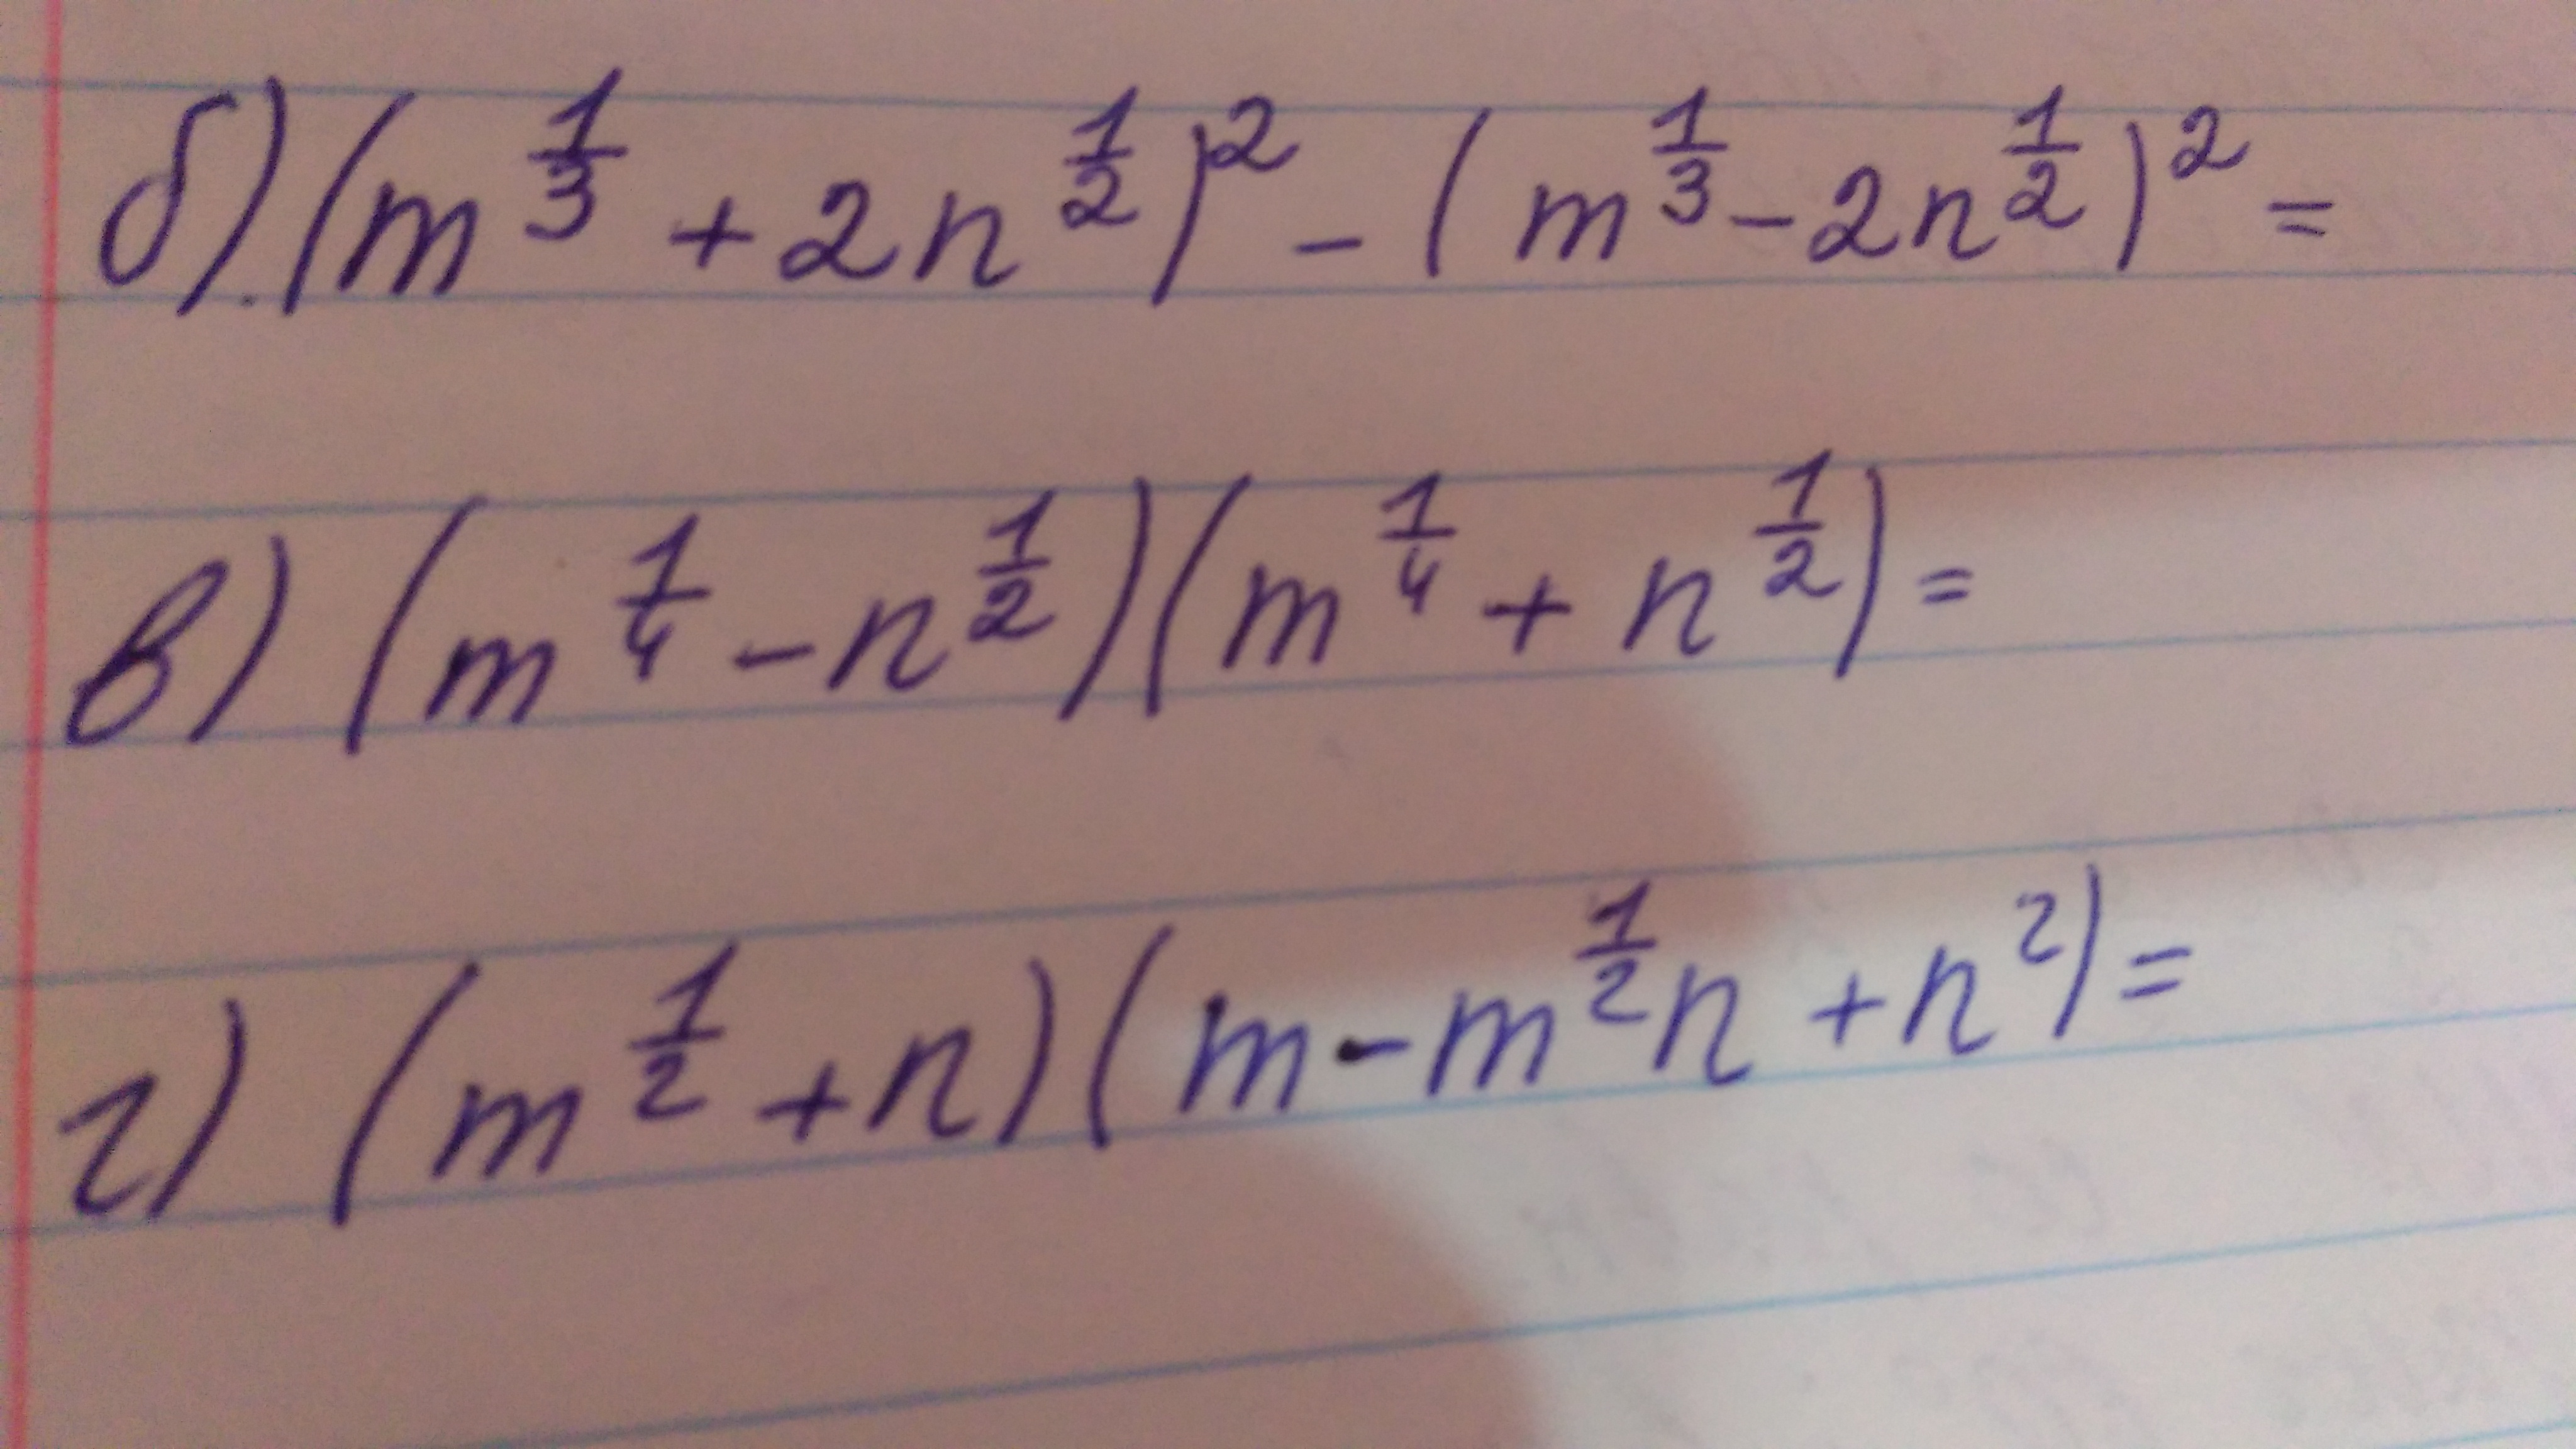 б). (m^{1/3} + 2n^{1/2})^2 - (m^{1/3} - 2n^{1/2})^2 =
в) (m^{1/4} - n^{1/2})(m^{1/4} + n^{1/2}) =
г) (m^{1/2} + n)(m - m^{1/2}n + n^2) =